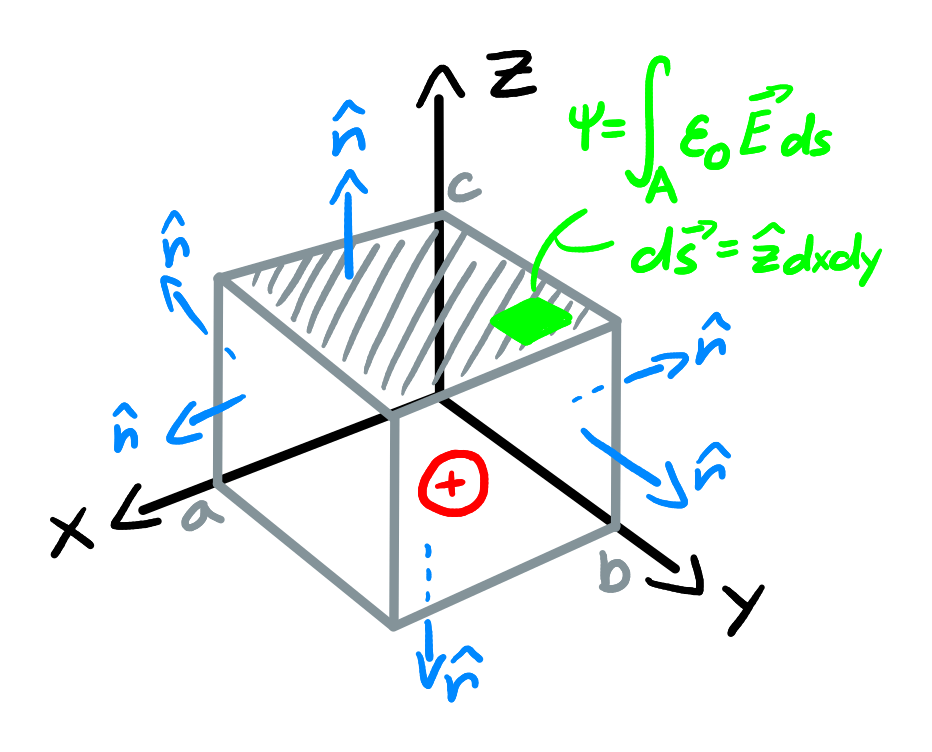 z
n̂
ψ=∫_A ε₀ E⃗ ds
c
n̂
ds⃗ = ẑdxdy
n̂
n̂
n̂
+
x
a
b
y
n̂